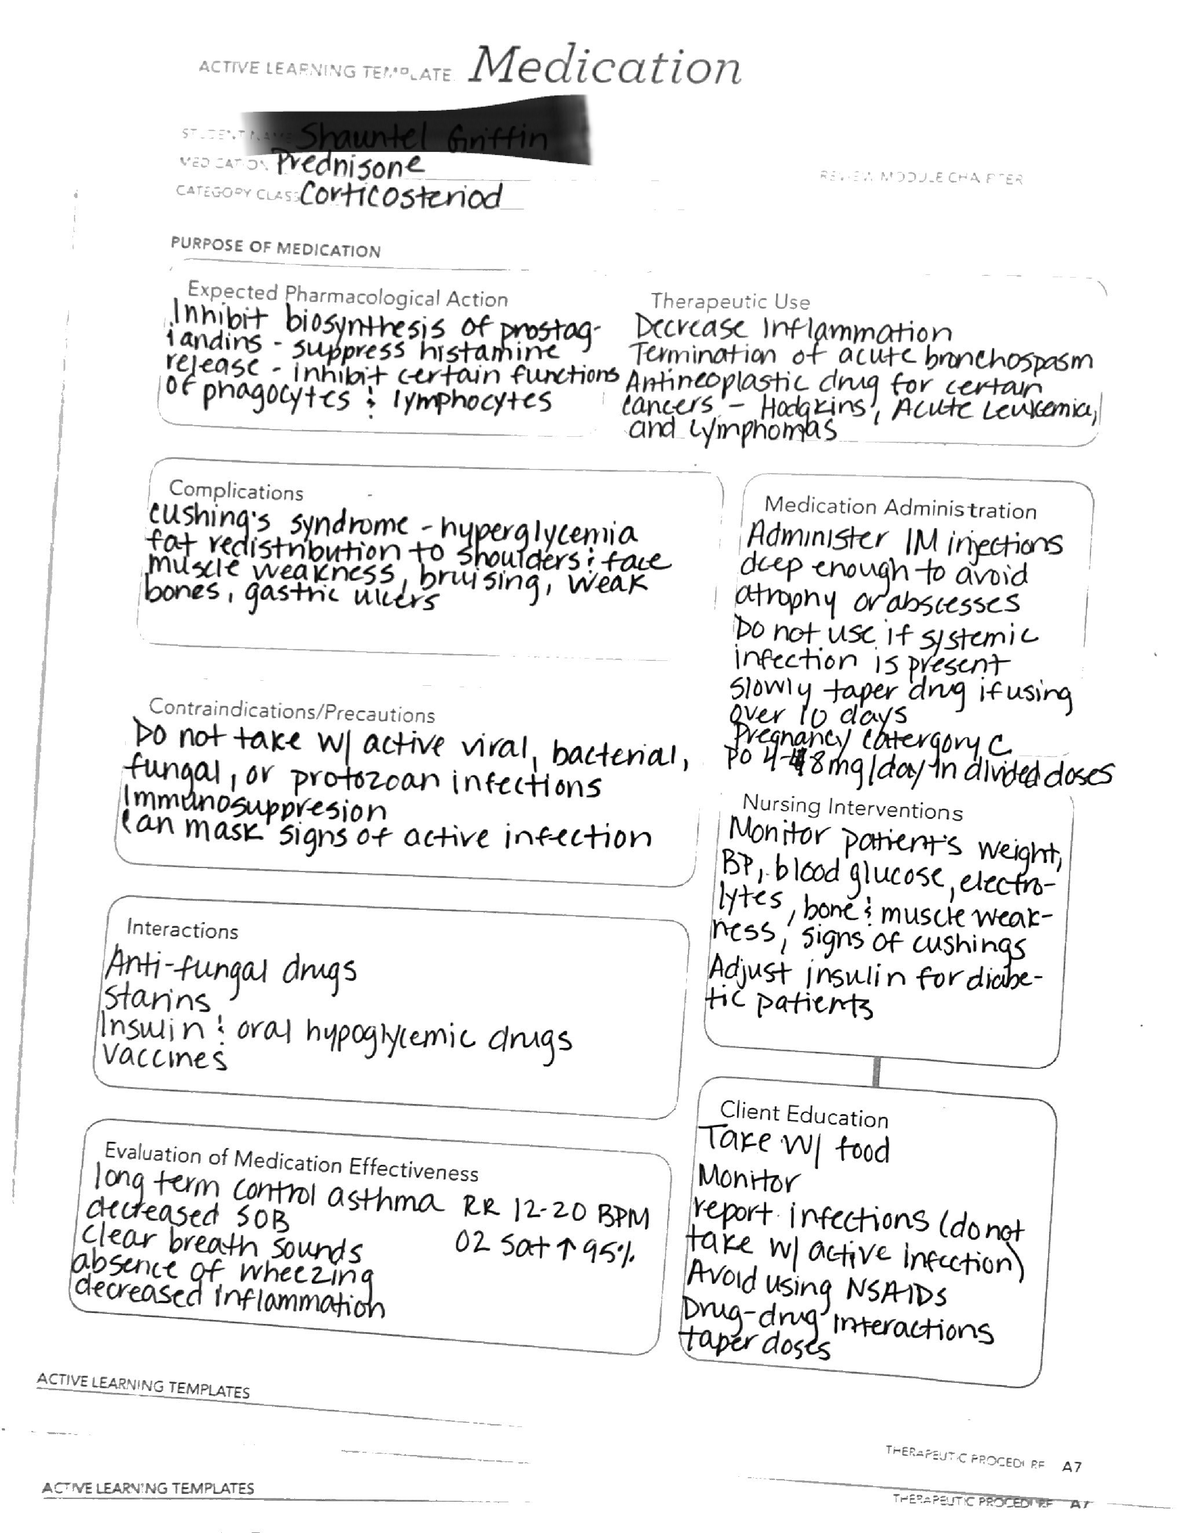 ACTIVE LEARNING TEMPLATE: Medication
STUDENT NAME Shauntel Griffin
MEDICATION Prednisone
REVIEW MODULE CHAPTER
CATEGORY CLASS Corticosteriod
PURPOSE OF MEDICATION
Expected Pharmacological Action
Inhibit biosynthesis of prostag-
landins - suppress histamine
release - inhibit certain functions
of phagocytes & lymphocytes
Therapeutic Use
Decrease Inflammation
Termination of acute bronchospasm
Antineoplastic drug for certain
cancers - Hodgkins, Acute Leukemia,
and Lymphomas
Complications
cushing's syndrome - hyperglycemia
fat redistribution to shoulders & face
muscle weakness, bruising, weak
bones, gastric ulcers
Contraindications/Precautions
Do not take w/ active viral, bacterial,
fungal, or protozoan infections
Immunosuppresion
Can mask signs of active infection
Interactions
Anti-fungal drugs
Starins
Insulin & oral hypoglycemic drugs
Vaccines
Evaluation of Medication Effectiveness
long term control asthma RR 12-20 BPM
decreased SOB
clear breath sounds O2 Sat ↑ 95%
absence of wheezing
decreased inflammation
Medication Administration
Administer IM injections
deep enough to avoid
atrophy or abscesses
Do not use if systemic
infection is present
Slowly taper drug if using
over 10 days
Pregnancy catergory C
PO 4-48mg/day in divided doses
Nursing Interventions
Monitor patient's weight,
BP, blood glucose, electro-
lytes, bone & muscle weak-
ness, signs of cushings
Adjust insulin for diabe-
tic patients
Client Education
Take w/ food
Monitor
report infections (do not
take w/ active infection)
Avoid using NSAIDs
Drug-drug interactions
taper doses
ACTIVE LEARNING TEMPLATES
THERAPEUTIC PROCEDURE A7
ACTIVE LEARNING TEMPLATES
THERAPEUTIC PROCEDURE A7